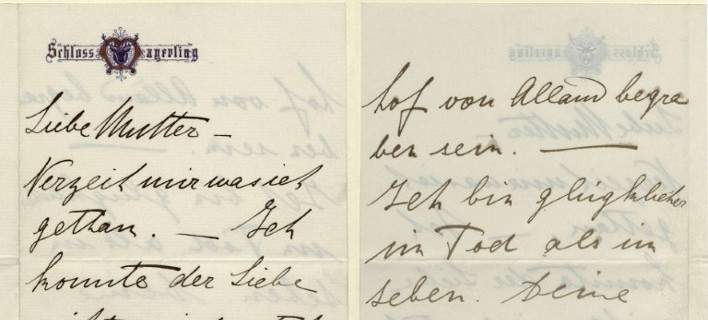 Schloss Mayerling
Liebe Mutter –
Verzeih mir was ich
gethan. – Ich
konnte der Liebe
hof von Alland begra
ben sein. —
Ich bin glücklicher
im Tod als im
Leben. Deine